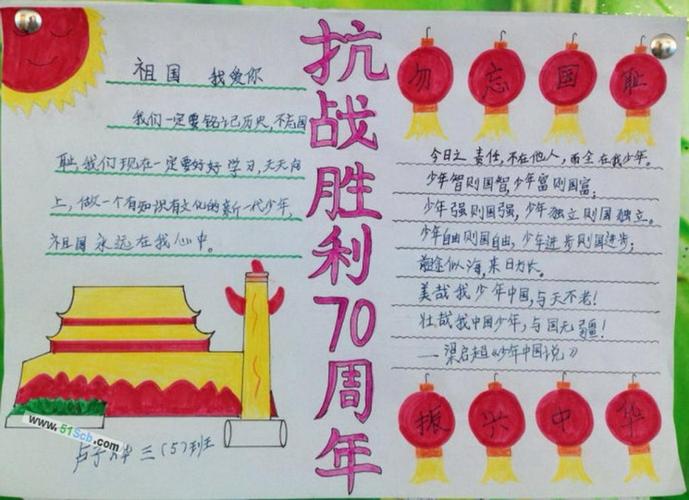 抗战胜利70周年
祖国 我爱你
我们一定要铭记历史,不忘国
耻,我们现在一定要好好学习,天天向
上,做一个有知识有文化的新一代少年,
祖国永远在我心中。
勿忘国耻
今日之责任,不在他人,而全在我少年。
少年智则国智,少年富则国富;
少年强则国强,少年独立则国独立。
少年自由则国自由,少年进步则国进步;
前途似海,来日方长。
美哉我少年中国,与天不老!
壮哉我中国少年,与国无疆!
——梁启超《少年中国说》
振兴中华
www.51Scb.com
三(5)班